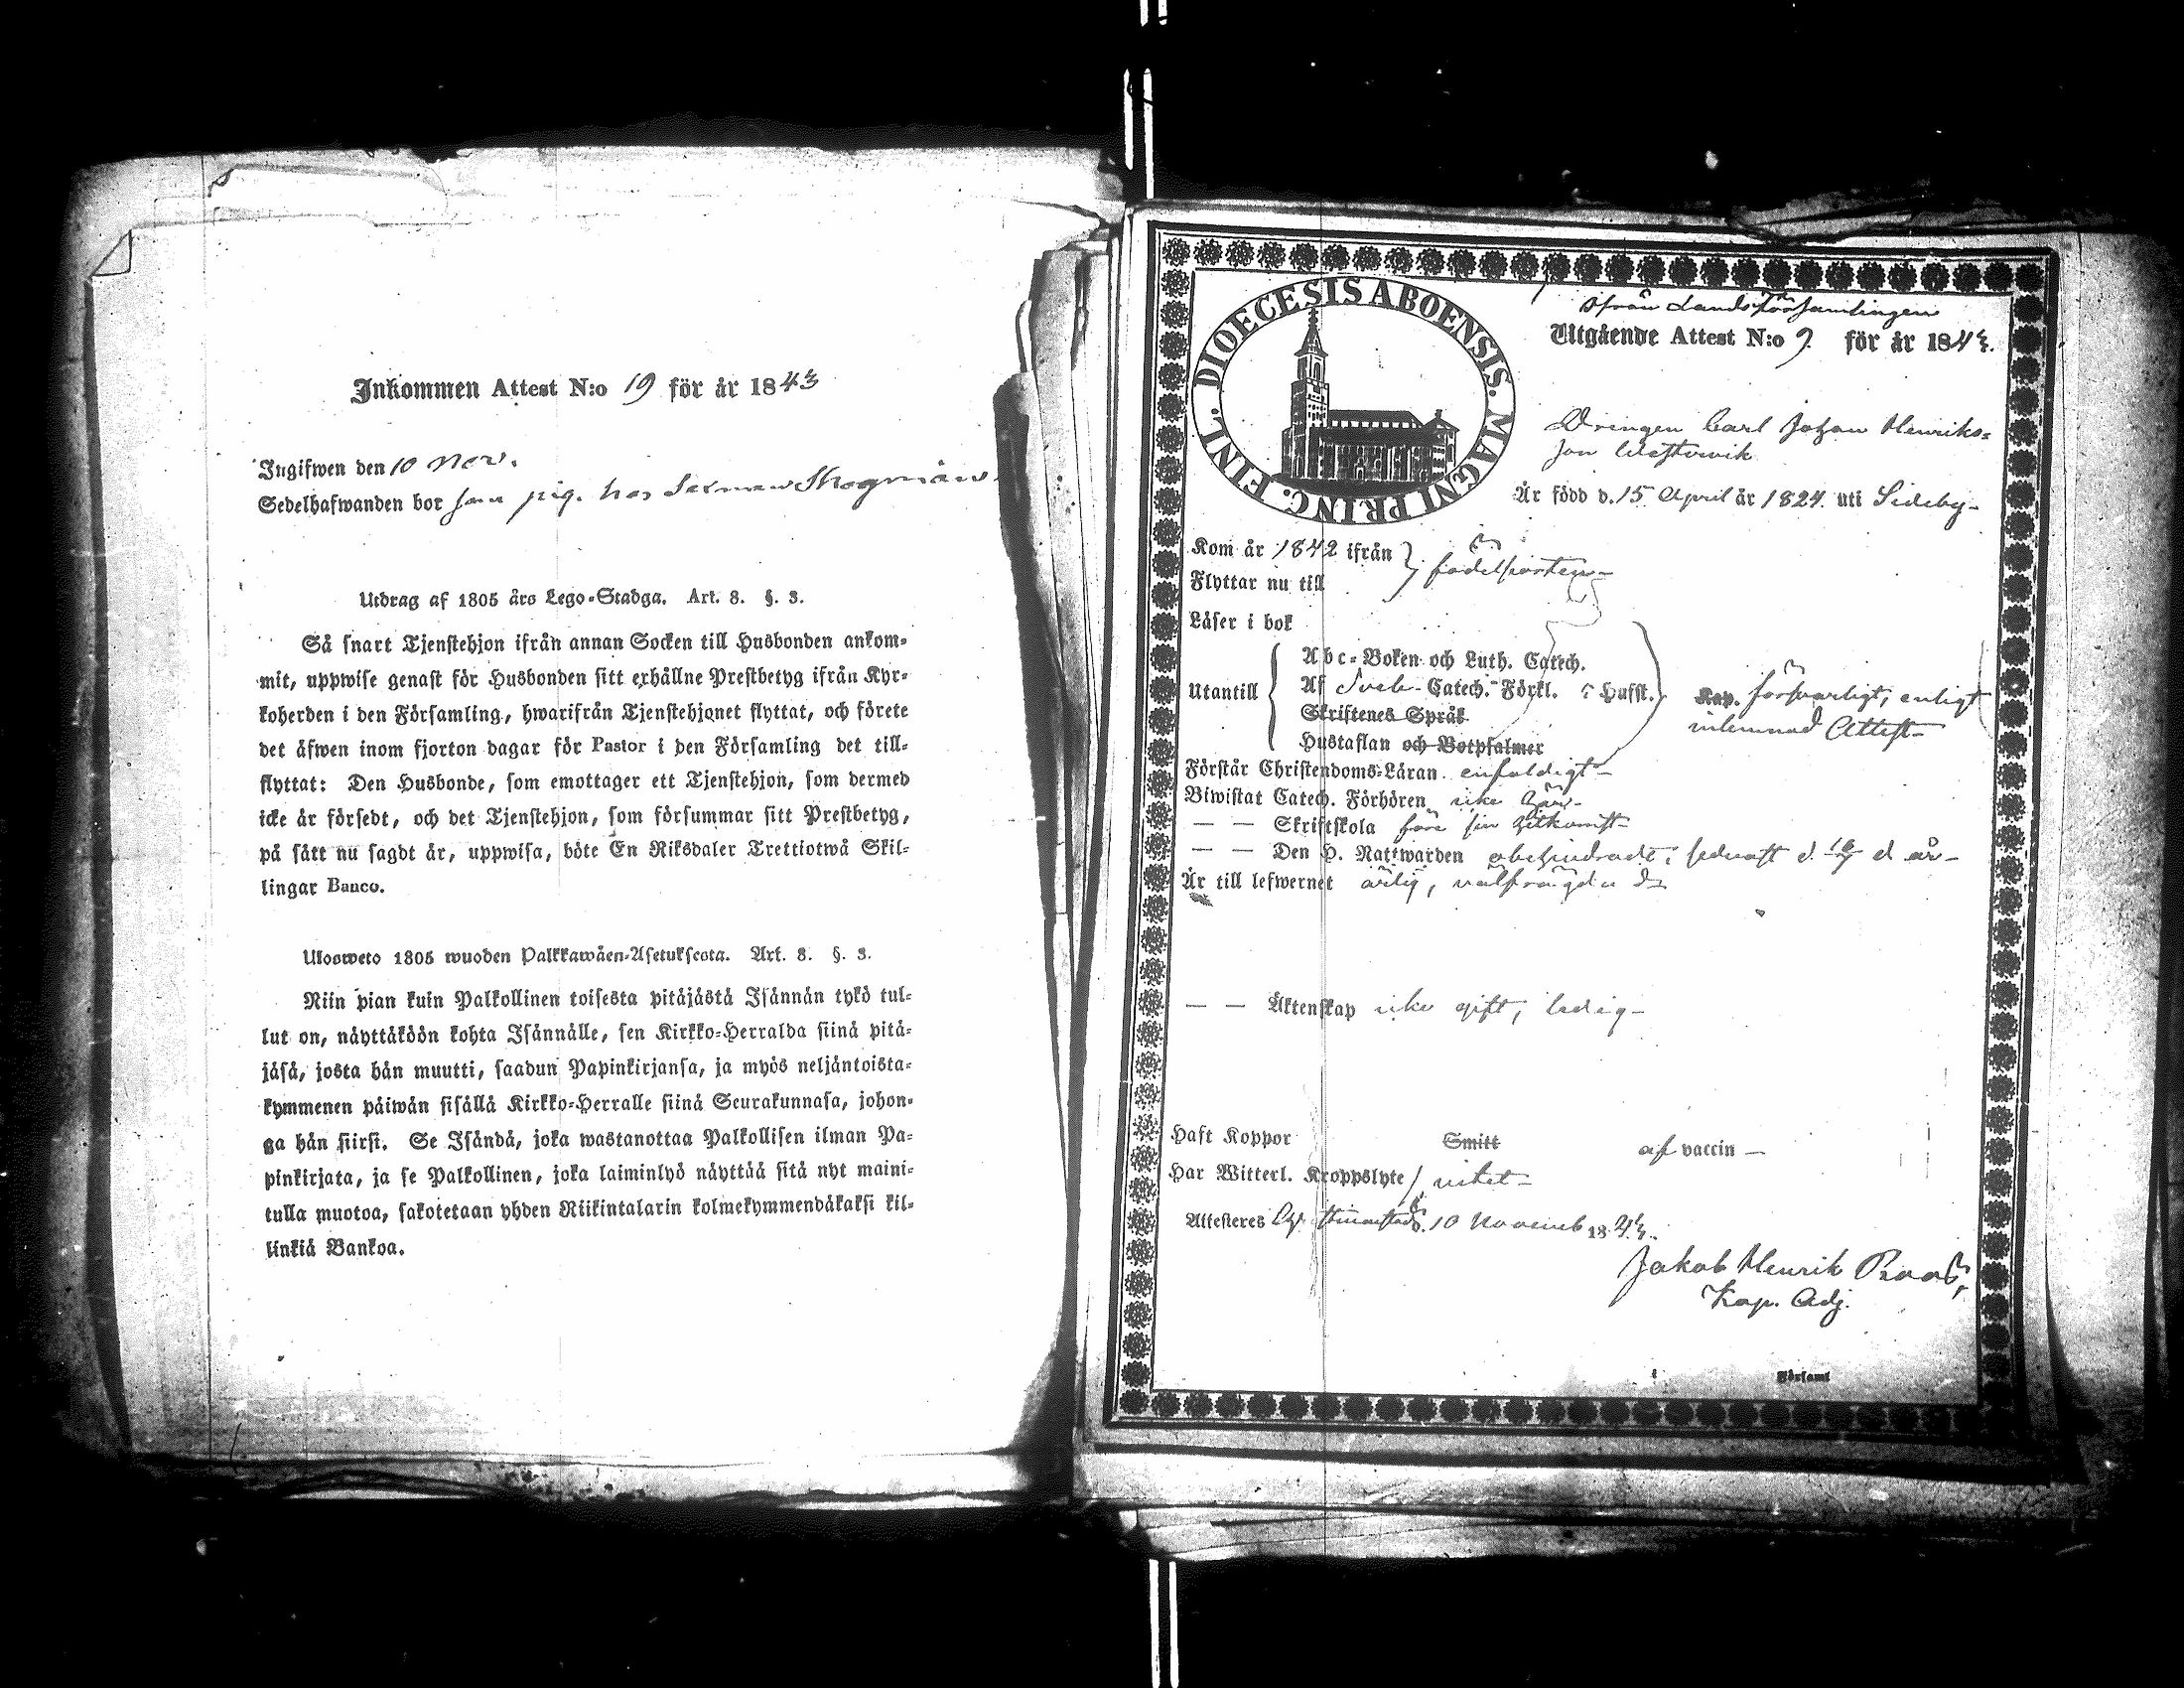 Inkommen Attest N:o 19 för år 1843
Ingifwen den 10 Nov.
Sedelhafwanden bor som pig. hos
Utdrag af 1805 års Lego-Stadga. Art. 8. §. 3.
Så snart Tjenstehjon ifrån annan Socken till Husbonden ankom-
mit, uppwise genast för Husbonden sitt erhållne Prestbetyg ifrån Kyr-
koherden i den Församling, hwarifrån Tjenstehjonet flyttat, och förete
det äfwen inom fjorton dagar för Pastor i den Församling det till-
flyttat: Den Husbonde, som emottager ett Tjenstehjon, som dermed
icke är försedt, och det Tjenstehjon, som försummar sitt Prestbetyg,
på sätt nu sagdt är, uppwisa, böte En Riksdaler Trettiotwå Skil-
lingar Banco.
Ulosweto 1805 wuoden Palkkawäen-Asetuksesta. Art. 8. §. 3.
Niin pian kuin Palkollinen toisesta pitäjästä Isännän tykö tul-
lut on, näyttäköön kohta Isännälle, sen Kirkko-Herralda siinä pitä-
jäsä, josta hän muutti, saadun Papinkirjansa, ja myös neljäntoista-
kymmenen päiwän sisällä Kirkko-Herralle siinä Seurakunnasa, johon-
ga hän siirsi. Se Isändä, joka wastanottaa Palkollisen ilman Pa-
pinkirjata, ja se Palkollinen, joka laiminlyö näyttää sitä nyt maini-
tulla muotoa, sakotetaan yhden Riikintalarin kolmekymmendäkaksi kil-
linkiä Bankoa.
DIOECESIS ABOENSIS. MAGNI PRINC. FINL.
ifrån Landsförsamlingen
Utgående Attest N:o 9 för år 1843.
Drengen Carl Johan Henriks-
son Westerwik
Är född d. 15 April år 1824. uti Sideby
Kom år 1842 ifrån
Flyttar nu till födelseorten
Läser i bok
Utantill
Abc-Boken och Luth. Catech.
Af Sveb. Catech. Förkl. Husst. Kap. försvarligt, enligt
Skriftenes Språk inlemnad Attest
Hustaflan och Botpsalmer
Förstår Christendoms-Läran enfaldigt
Biwistat Catech. Förhören icke här
— — Skriftskola före sin hitkomst
— — Den H. Nattwarden obehindradt, sednast d.
Är till lefwernet ärlig, välfrägdad
— — Äktenskap icke gift, ledig
Haft Koppor Smitt af vaccin —
Har Witterl. Kroppslyte / intet
Attesteras Christinestad d. 10 Novemb 1843.
Jakob Henrik Roos,
Kap. Adj.
i Församl